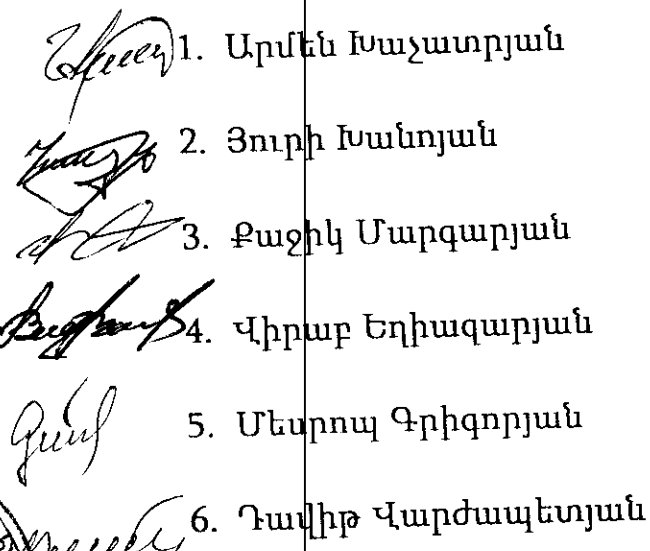 1. Արմեն Խաչատրյան
2. Յուրի Խանոյան
3. Քաջիկ Մարգարյան
4. Վիրաբ Եղիազարյան
5. Մեսրոպ Գրիգորյան
6. Դավիթ Վարժապետյան